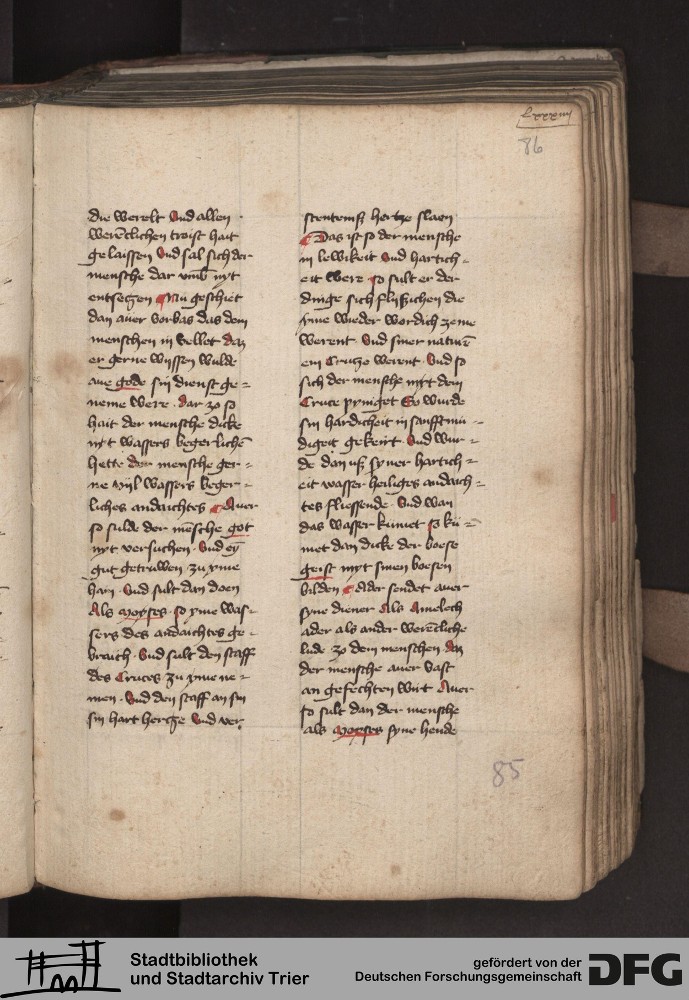 lxxxiiij
86
die werelt Vnd allen
werētlichen troist hait
gelaissen Vnd sal sich der
mensche dar vmb nyt
entsetzen Nu geschiet
dan auer vorbas das dem
menschen in fellet das
er gerne wyssen wulde
aue gode sin dienst ge=
neme were dar zo so
hait der mensche dicke
nyt wassers begerlichē
hette der mensche ger=
ne vyl wassers beger=
liches andaichtes Auer
so sulde der mēsche got
nyt versuchen Vnd eyn
gut getruwen zu yme
han Vnd sult dan doen
Als moyses so yme was=
sers des andaichtes ge=
braich Vnd sult den staff
des Cruces zu yme ne=
men Vnd den staff an sin
sin hart hertze Vnd ver
stentenisß hertze slaen
Das ist so der mensche
in lewikeit Vnd hartich=
eit were so sult er der
dinge sich flyßichen die
yme wieder wordich zeme
werent Vnd siner naturē
ein Crutze werent Vnd so
sich der mensche myt dem
Cruce pyniget So wurde
sin hardicheit in sanfftmu=
digeit gekeirt Vnd wur=
de dan uß syner hartich=
eit wasser heiliges andaich=
tes fliessende Vnd wan
das wasser kumet so ku=
met dan dicke der boese
geist myt sinen boesen
bilden Ader sendet auer
syne diener Als Amelech
ader als ander werētliche
lude zo dem menschen das
der mensche auer vast
an gefechten wirt Auer
so sult dan der mensche
als moyses syne hende
85
Stadtbibliothek
und Stadtarchiv Trier
gefördert von der
Deutschen Forschungsgemeinschaft
DFG